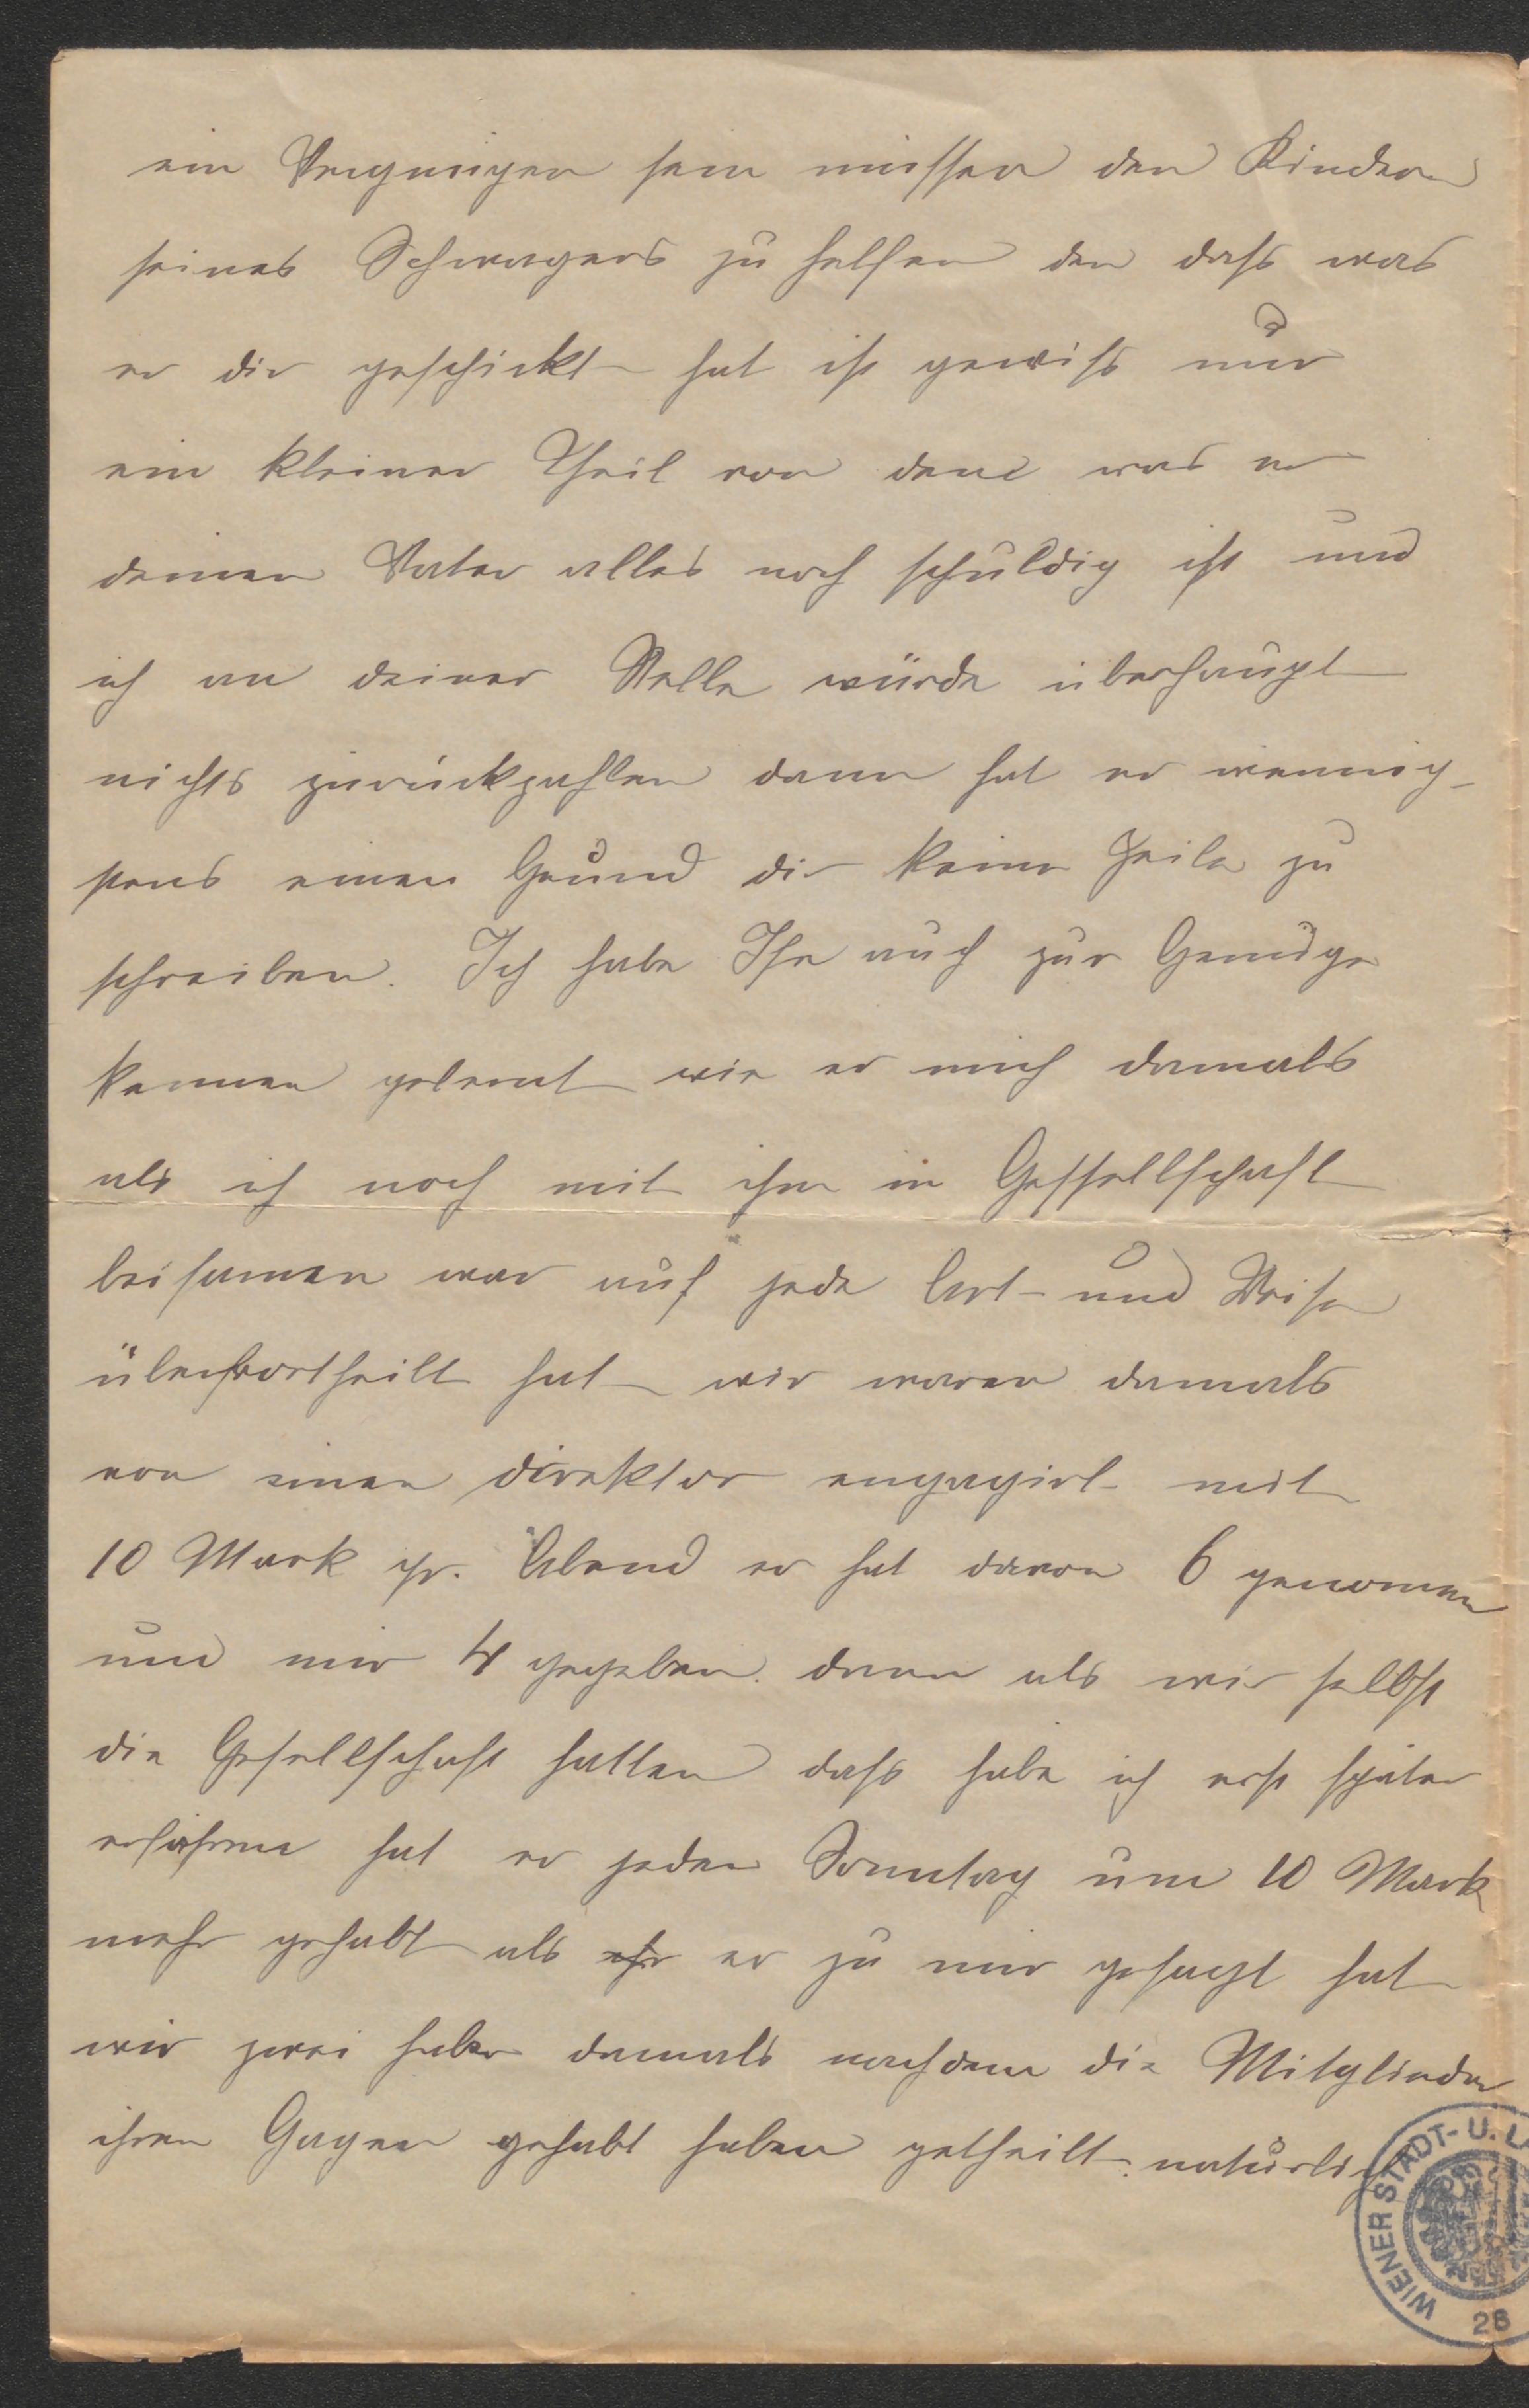 ein Vergnügen sein müssen den Kindern
seines Schwagers zu helfen den daß was
er dir geschickt hat ist gewiß nur
ein kleiner Theil von dem was er
deinen Vater alles noch schuldig ist und
ich an deiner Stelle würde überhaupt
nichts zurückzahlen dann hat er wennig-
stens einen Grund dir keine Zeile zu
schreiben. Ich habe Ihn auch zur Genüge
kennen gelernt wie er mich damals
als ich noch mit ihm in Gessellschaft
beisamen war auf jede Art und Weise
übervortheilt hat wir waren damals
von einen Direktor engagirt mit
10 Mark pr. Abend er hat davon 6 genommen
und mir 4 gegeben. dann als wir selbst
die Gesellschaft hatten daß habe ich erst später
erfahren hat er jeden Sonntag um 10 Mark
mehr gehabt als er zu mir gesagt hat
wir zwei haben damals nachdem die Mitglieder
ihren Gagen gehabt haben getheilt. natürlich
WIENER STADT- U. L
28